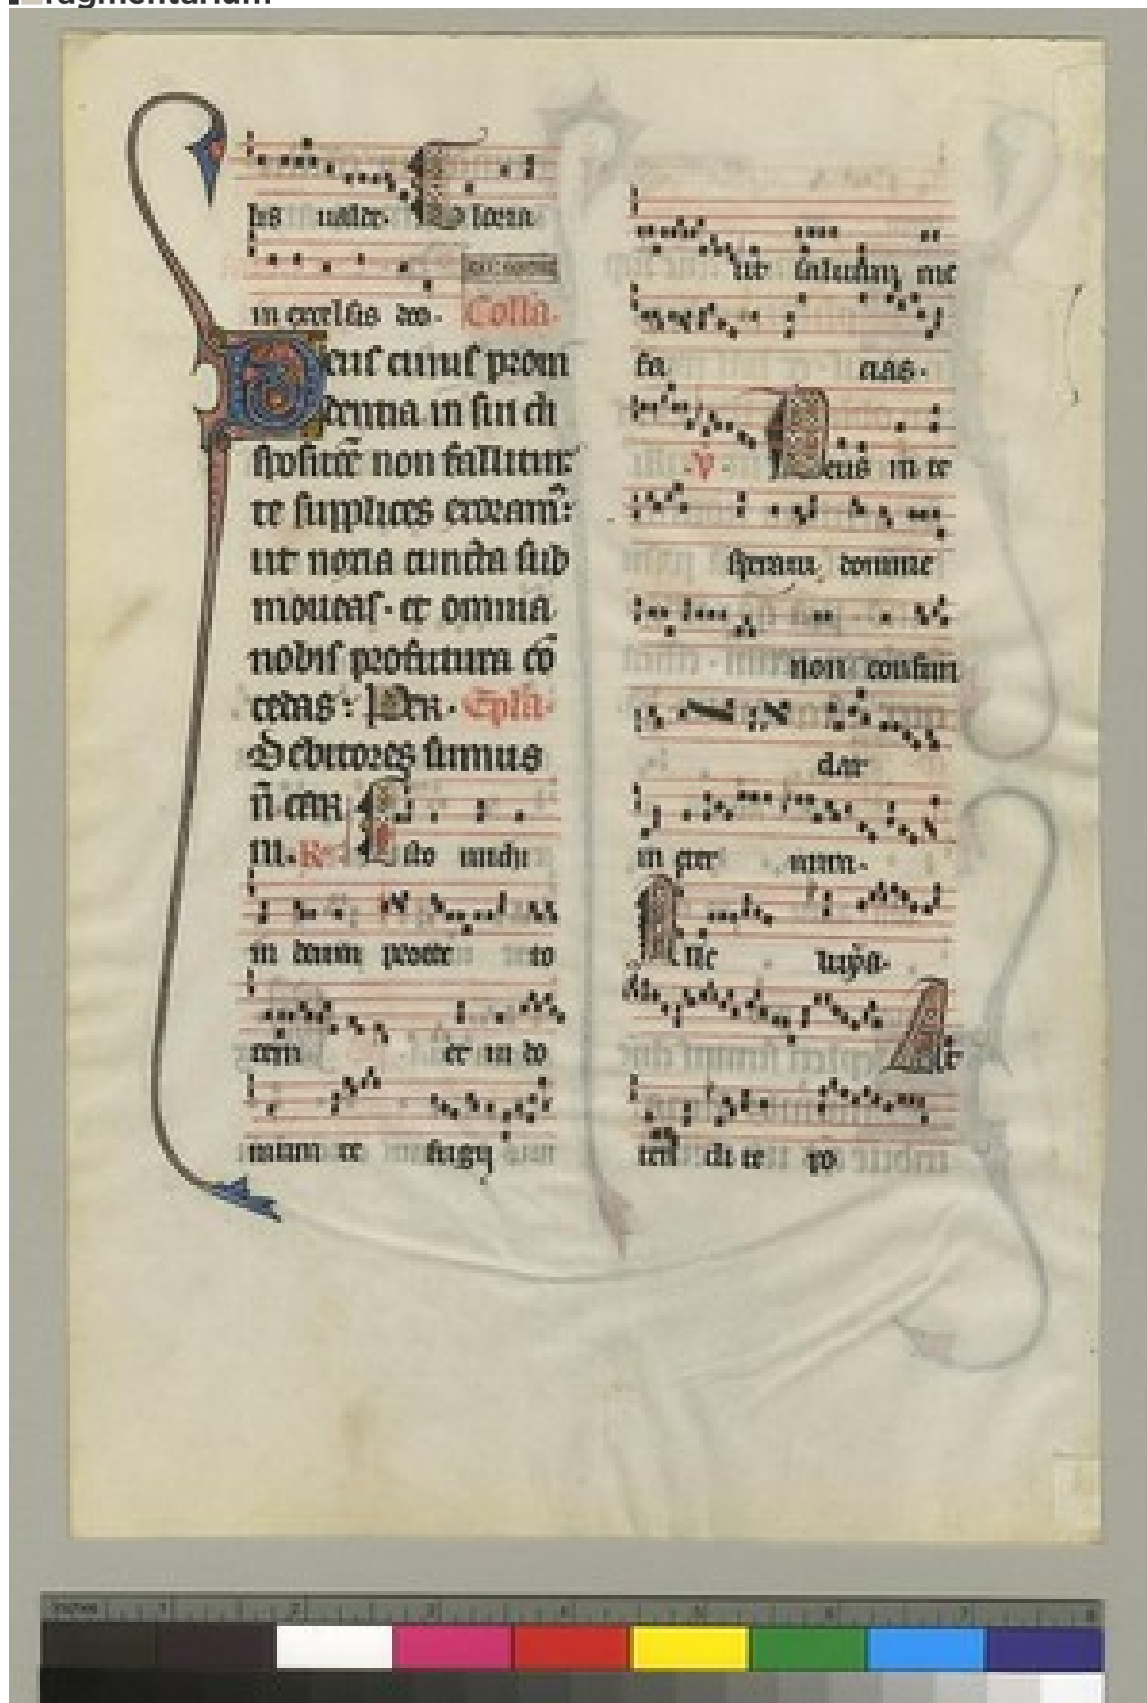 fragmentarium
bis ualde. Gloria
in excelsis deo. Collā.
Deus cuius proui
dentia in sui di
spositōe non fallitur:
te supplices exoram̄:
ut noxia cuncta sub
moueas. et omnia
nobis profutura cō
cedas: Per. Ep̄la.
Debitores sumus
n̄ car
ni. R. Esto michi
in deum protec to
rem et in lo
cum re fugij
ut saluum me
fa cias.
V. Deus in te
speraui domine
non confun
dar
in eter num.
Alle luya.
Al
ten di te po
inches 1 2 3 4 5 6 7 8